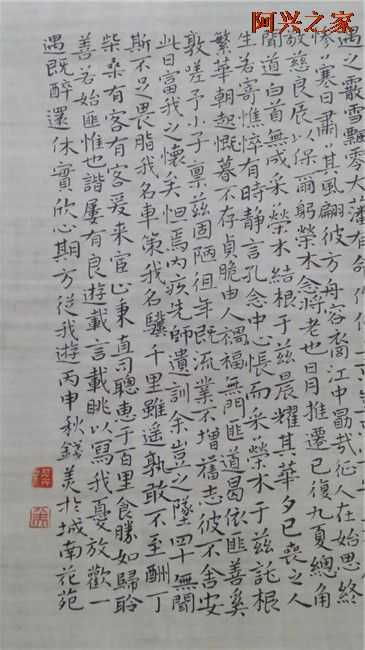 阿兴之家
遇之霰雪飄零大藩有命作
慘々寒日肅々其風翩彼方舟容裔江中勗哉征人在始思終
敬慈良辰以保爾躬榮木念將老也日月推遷已復九夏總角
聞道白首無成采榮木結根于兹晨耀其華夕已喪之人
生若寄憔悴有時靜言孔念中心悵而采榮木于兹託根
繁華朝起慨暮不存貞脆由人禍福無門匪道曷依匪善奚
敦嗟予小子禀兹固陋徂年既流業不增舊志彼不舍安
此日富我之懷矣怛焉内疚先師遺訓余豈之墜四十無聞
斯不足畏脂我名車策我名驥千里雖遥孰敢不至酬丁
柴桑有客有客爰来宦心秉直司聰惠于百里飡勝如歸聆
善若始匪惟也諧屢有良遊載言載眺以寫我憂放歡一
遇既醉還休實欣心期方從我遊丙申秋美於城南花苑